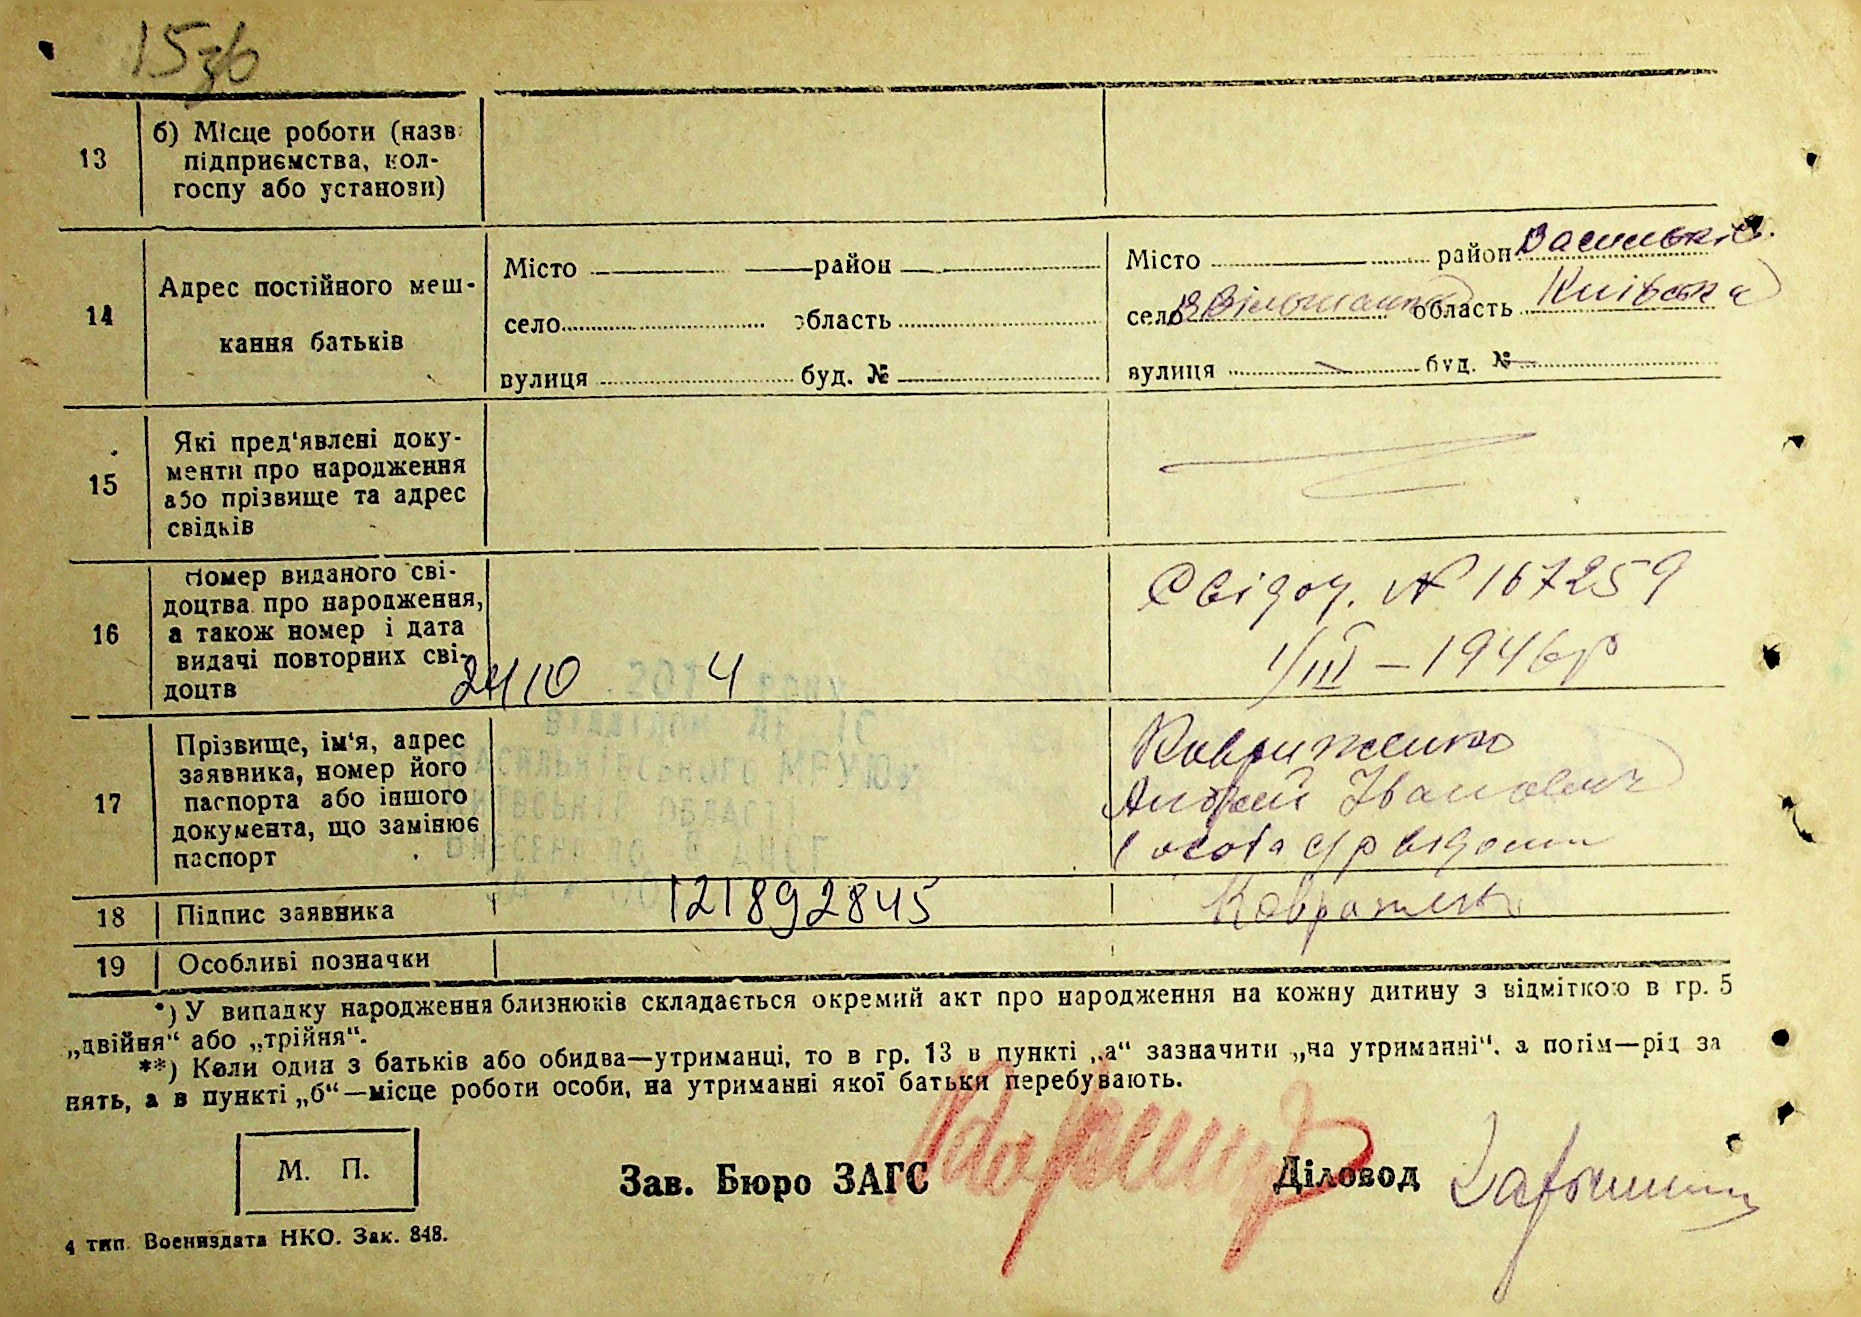 15зв
13
б) Місце роботи (назв
підприємства, кол-
госпу або установи)
14
Адрес постійного меш-
кання батьків
Місто район
село область
вулиця буд. №
Місто район Васильків.
село область Київська
вулиця буд. №
15
Які пред'явлені доку-
менти про народження
або прізвище та адрес
свідків
16
Номер виданого сві-
доцтва про народження,
а також номер і дата
видачі повторних сві-
доцтв
24 10 2014 року
Свідоц. № 167259
1/III – 1946 р
17
Прізвище, ім'я, адрес
заявника, номер його
паспорта або іншого
документа, що замінює
паспорт
Васильківського МРУЮ
Ковриженко
Андрій Іванович
особа с/р відома
18
Підпис заявника
121892845
19
Особливі позначки
*) У випадку народження близнюків складається окремий акт про народження на кожну дитину з відміткою в гр. 5
„двійня“ або „трійня“.
**) Коли один з батьків або обидва—утриманці, то в гр. 13 в пункті „а“ зазначити „на утриманні“, а потім—рід за
нять, а в пункті „б“—місце роботи особи, на утриманні якої батьки перебувають.
М. П.
Зав. Бюро ЗАГС
Діловод
4 тип. Воениздата НКО. Зак. 848.